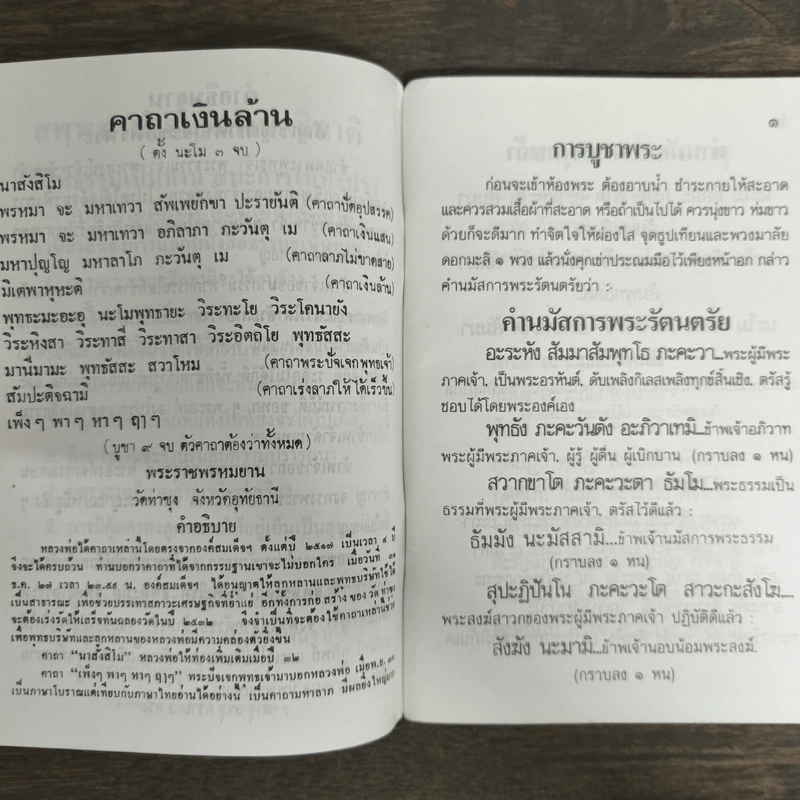 คาถาเงินล้าน
( ตั้ง นะโม ๓ จบ )
นาสังสิโม
พรหมา จะ มหาเทวา สัพเพยักขา ปะรายันติ (คาถาปัดอุปสรรค)
พรหมา จะ มหาเทวา อภิลาภา ภะวันตุ เม (คาถาเงินแสน)
มหาปุญโญ มหาลาโภ ภะวันตุ เม (คาถาลาภไม่ขาดสาย)
มิเตพาหุหะติ (คาถาเงินล้าน)
พุทธะมะอะอุ นะโมพุทธายะ วิระทะโย วิระโคนายัง
วิระหิงสา วิระทาสี วิระทาสา วิระอิตถิโย พุทธัสสะ
มานีมามะ พุทธัสสะ สวาโหม (คาถาพระปัจเจกพุทธเจ้า)
สัมปะติจฉามิ (คาถาเร่งลาภให้ได้เร็วขึ้น)
เพ็งๆ พาๆ หาๆ ฤาๆ
(บูชา ๙ จบ ตัวคาถาต้องว่าทั้งหมด)
พระราชพรหมยาน
วัดท่าซุง จังหวัดอุทัยธานี
คำอธิบาย
หลวงพ่อได้คาถาเหล่านี้โดยตรงจากองค์สมเด็จฯ ตั้งแต่ปี ๒๕๑๗ เป็นเวลา ๙ ปี
จึงจะได้ครบถ้วน ท่านบอกว่าคาถาที่ได้จากกรรมฐานเขาจะไม่บอกใคร เมื่อวันที่
ธ.ค. ๒๗ เวลา ๒๓.๕๙ น. องค์สมเด็จฯ ได้อนุญาตให้ลูกหลานและพุทธบริษัทใช้ได้
เป็นสาธารณะ เพื่อช่วยบรรเทาสภาวะเศรษฐกิจที่ย่ำแย่ อีกทั้งการก่อสร้างของวัดท่าซุง
จะต้องเร่งรัดให้เสร็จทันฉลองวัดในปี ๒๕๓๒ จึงจำเป็นที่จะต้องใช้คาถาเหล่านี้ช่วย
เพื่อพุทธบริษัทและลูกหลานของหลวงพ่อมีความคล่องตัวยิ่งขึ้น
คาถา "นาสังสิโม" หลวงพ่อให้ท่องเพิ่มเติมเมื่อปี ๓๒
คาถา "เพ็งๆ พาๆ หาๆ ฤาๆ" พระปัจเจกพุทธเจ้ามาบอกหลวงพ่อ เมื่อพ.ย. ๓๓
เป็นภาษาโบราณแต่เทียบกับภาษาไทยอ่านได้อย่างนี้ เป็นคาถามหาลาภ มีผลยิ่งใหญ่มาก
๑
การบูชาพระ
ก่อนจะเข้าห้องพระ ต้องอาบน้ำ ชำระกายให้สะอาด
และควรสวมเสื้อผ้าที่สะอาด หรือถ้าเป็นไปได้ ควรนุ่งขาว ห่มขาว
ด้วยก็จะดีมาก ทำจิตใจให้ผ่องใส จุดธูปเทียนและพวงมาลัย
ดอกมะลิ ๑ พวง แล้วนั่งคุกเข่าประณมมือไว้เพียงหน้าอก กล่าว
คำนมัสการพระรัตนตรัยว่า :-
คำนมัสการพระรัตนตรัย
อะระหัง สัมมาสัมพุทโธ ภะคะวา...พระผู้มีพระ
ภาคเจ้า, เป็นพระอรหันต์, ดับเพลิงกิเลสเพลิงทุกข์สิ้นเชิง, ตรัสรู้
ชอบได้โดยพระองค์เอง
พุทธัง ภะคะวันตัง อะภิวาเทมิ...ข้าพเจ้าอภิวาท
พระผู้มีพระภาคเจ้า, ผู้รู้ ผู้ตื่น ผู้เบิกบาน (กราบลง ๑ หน)
สวากขาโต ภะคะวะตา ธัมโม...พระธรรมเป็น
ธรรมที่พระผู้มีพระภาคเจ้า, ตรัสไว้ดีแล้ว :
ธัมมัง นะมัสสามิ...ข้าพเจ้านมัสการพระธรรม
(กราบลง ๑ หน)
สุปะฏิปันโน ภะคะวะโต สาวะกะสังโฆ....
พระสงฆ์สาวกของพระผู้มีพระภาคเจ้า ปฏิบัติดีแล้ว :
สังฆัง นะมามิ...ข้าพเจ้านอบน้อมพระสงฆ์.
(กราบลง ๑ หน)